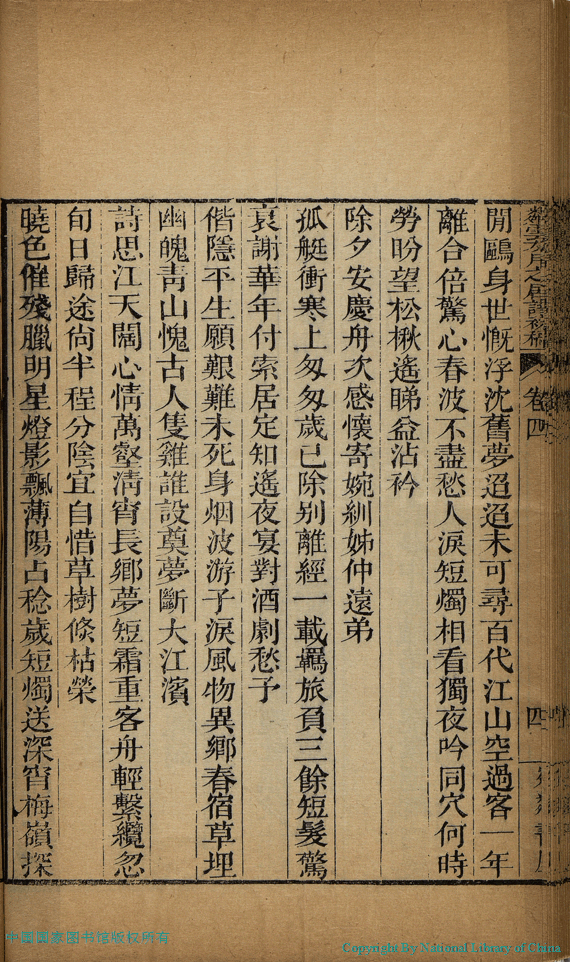 卷四
四
閒鷗身世慨浮沈舊夢迢迢未可尋百代江山空過客一年
離合倍驚心春波不盡愁人淚短燭相看獨夜吟同穴何時
勞盼望松楸遙睇益沾衿
除夕安慶舟次感懷寄婉紃姊仲遠弟
孤艇衝寒上匆匆歲已除別離經一載羈旅負三餘短髮驚
衰謝華年付索居定知遙夜宴對酒劇愁予
偕隱平生願艱難未死身烟波游子淚風物異鄉春宿草埋
幽魄靑山愧古人隻雞誰設奠夢斷大江濱
詩思江天闊心情萬壑淸宵長鄉夢短霜重客舟輕繫纜忽
旬日歸途尙半程分陰宜自惜草樹倐枯榮
曉色催殘臘明星燈影飄薄陽占稔歲短燭送深宵梅嶺探
中國國家图书馆版权所有
Copyright By National Library of China